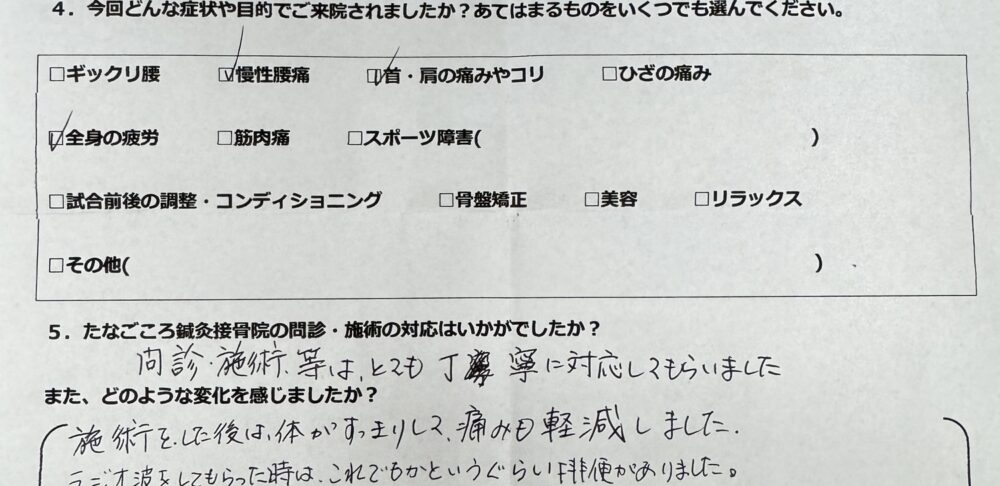 4．今回どんな症状や目的でご来院されましたか？あてはまるものをいくつでも選んでください。
□ギックリ腰 ☑慢性腰痛 ☑首・肩の痛みやコリ □ひざの痛み
☑全身の疲労 □筋肉痛 □スポーツ障害( )
□試合前後の調整・コンディショニング □骨盤矯正 □美容 □リラックス
□その他( )
5．たなごころ鍼灸接骨院の問診・施術の対応はいかがでしたか？
問診・施術、等は、とても丁寧に対応してもらいました
また、どのような変化を感じましたか？
施術をした後は、体がすっきりして、痛みも軽減しました.
ラジオ波をしてもらった時は、これでもかというぐらい排便がありました。